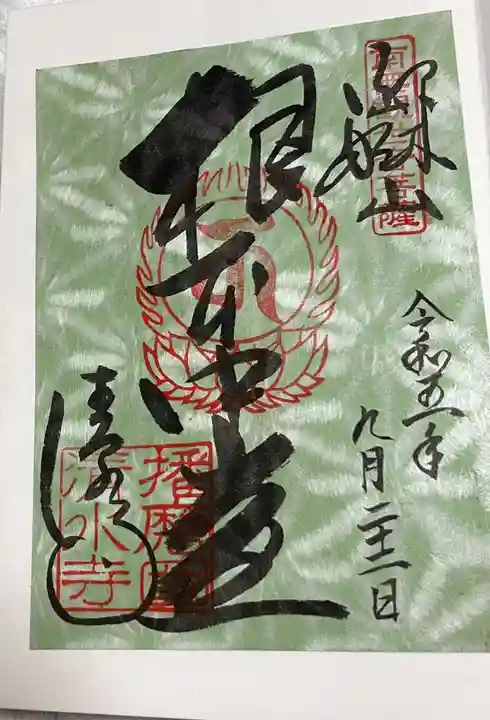 御嶽山
令和五年
九月二十二日
根本中堂
清水寺
播磨国
清水寺